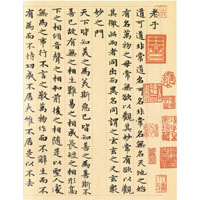 老子
道可道非常道名可名非常名無名天地之始
有名萬物母常無欲以觀其妙常有欲以觀
其徼此兩者同出而異名同謂之玄玄之又玄衆
妙之門
天下皆知美之為美斯惡已皆知善之為善斯不
善已故有無之相生難易之相成長短之相形高
下之相傾聲音之相和前後之相隨是以聖人處
無為之事行不言之教萬物作而不辭生而不
有為而不恃功成不居夫惟不居是以不去